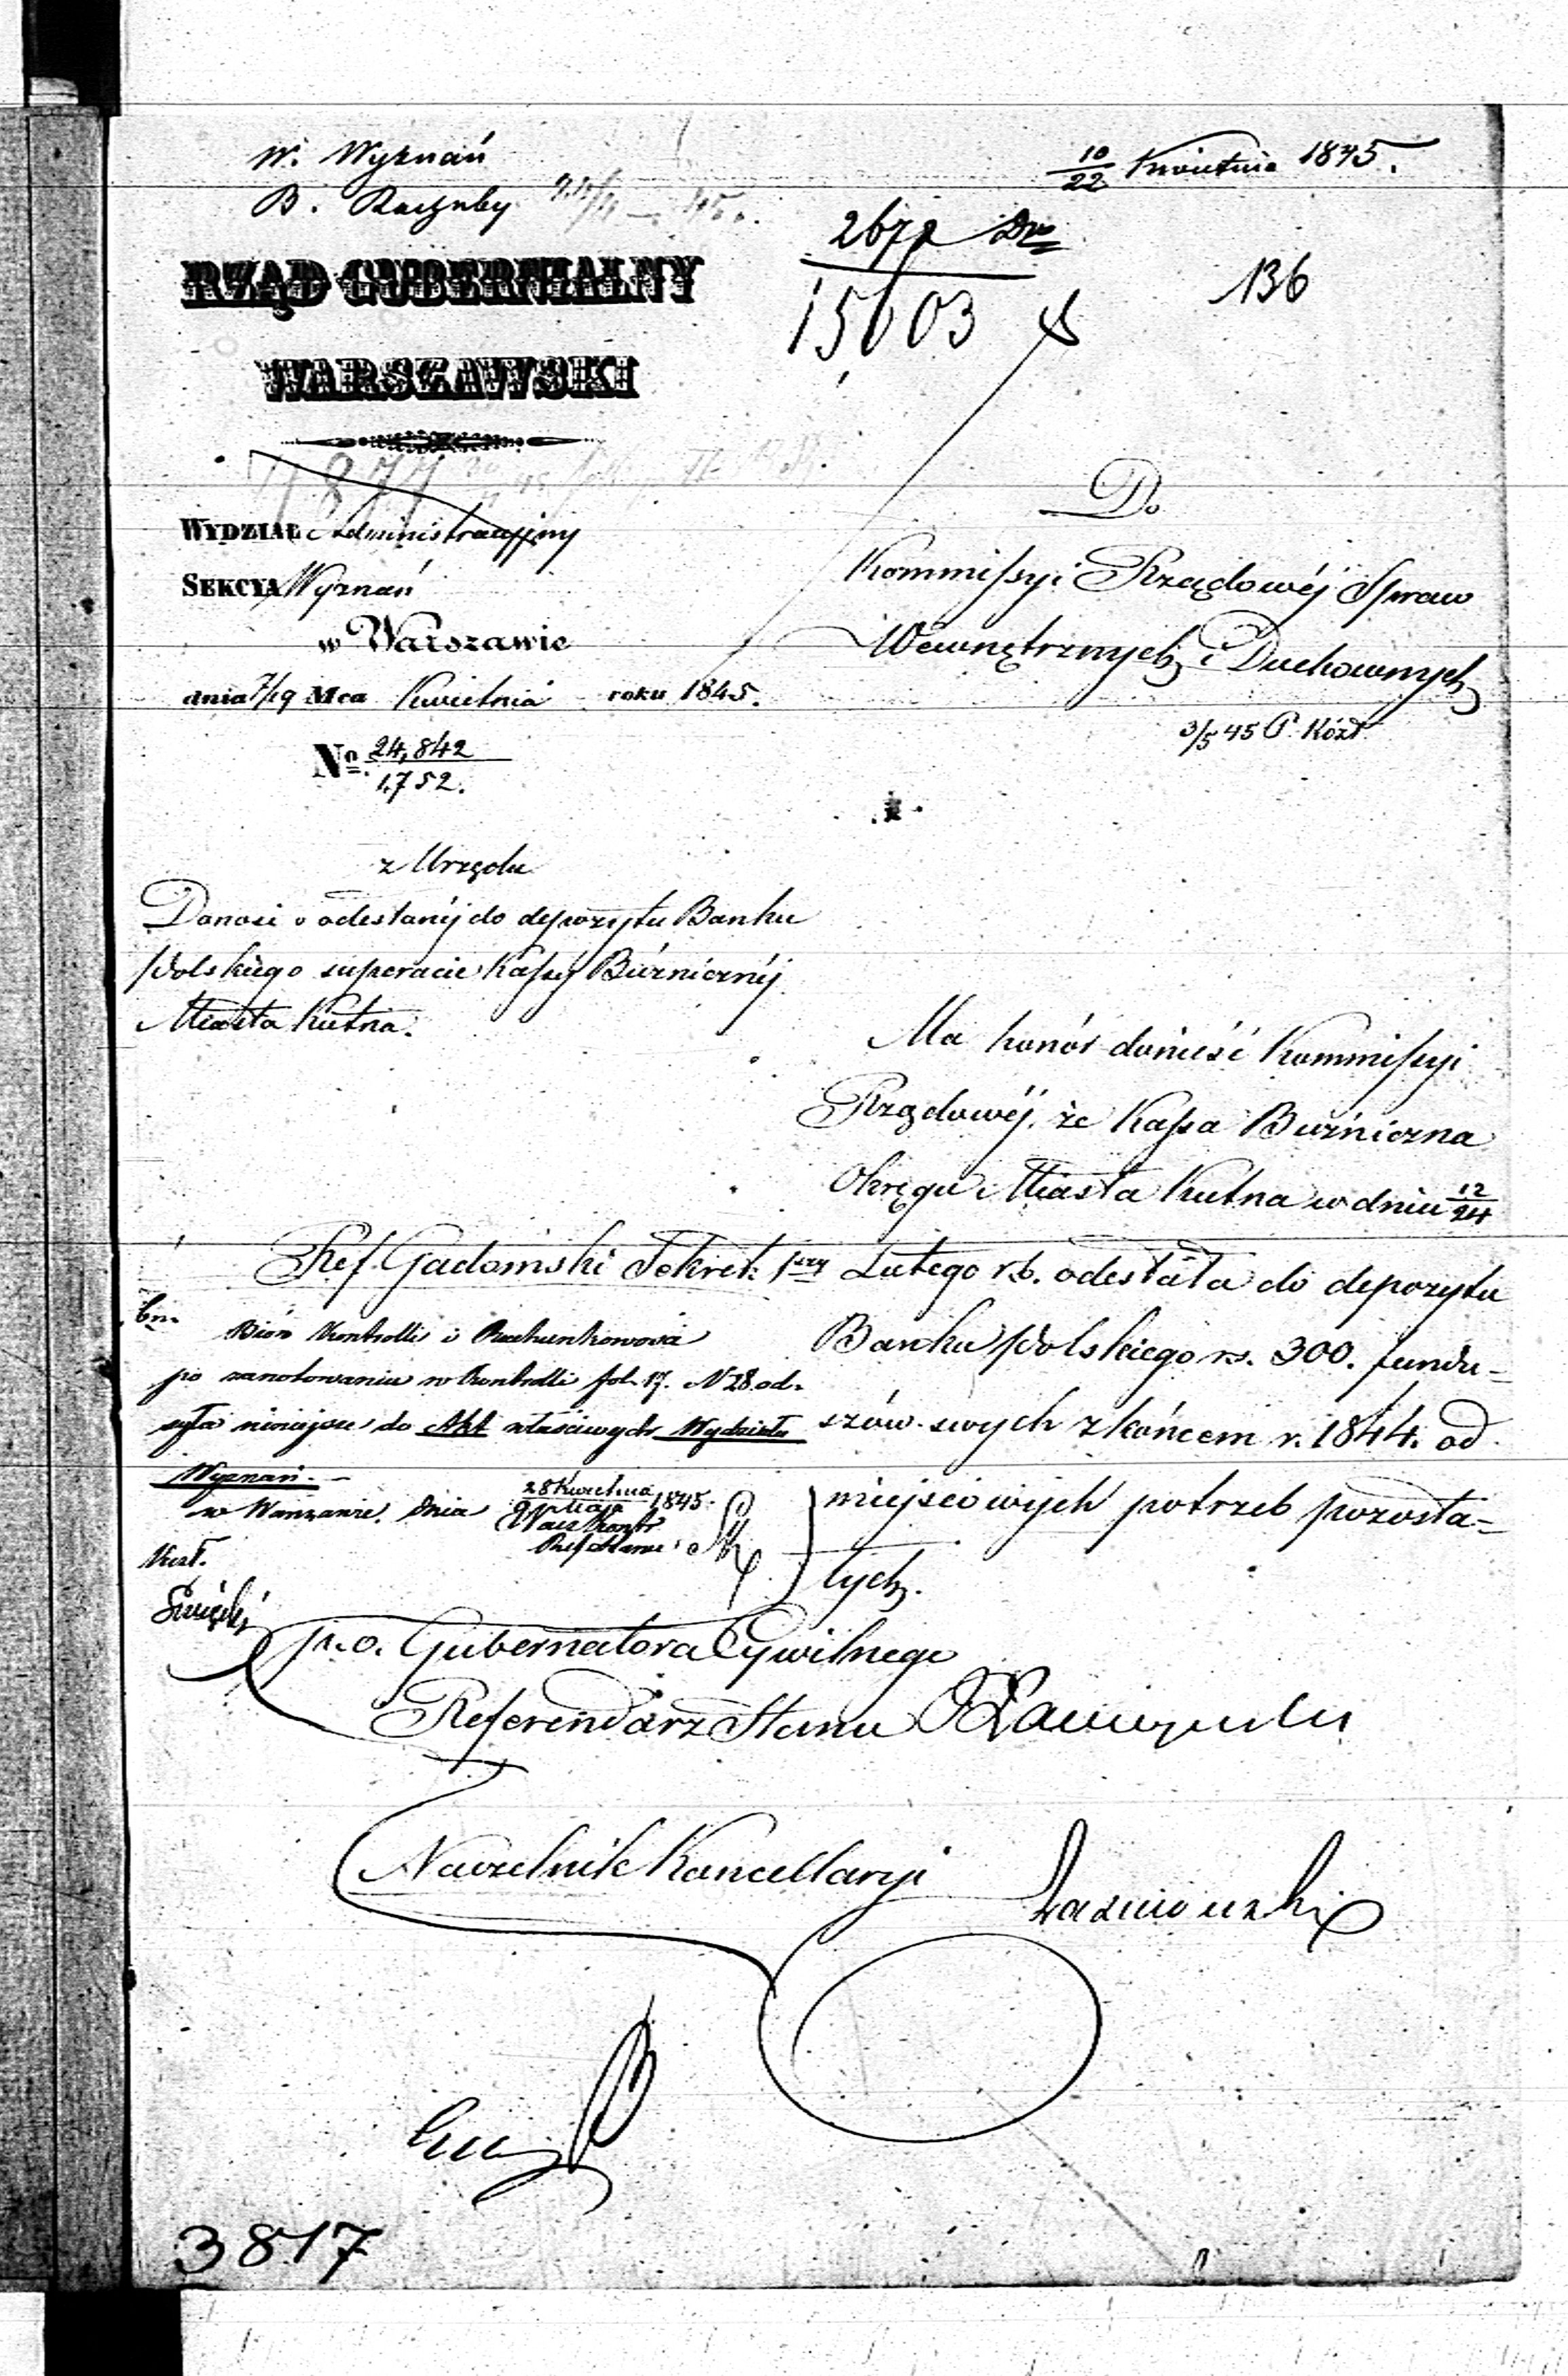 W. Wyznań
B. Rachuby
10/22 Kwietnia 1845.
15603
136
RZĄD GUBERNIALNY
WARSZAWSKI
WYDZIAŁ Administracyjny
SEKCYA Wyznań
w Warszawie
dnia 7/19 Mca Kwietnia roku 1845.
No. 24,842
1752.
Do
Kommissyi Rządowéj Spraw
Wewnętrznych i Duchownych
3/5 45
z Urzędu
Donosi o odesłanéj do depozytu Banku
Polskiego superacie Kassy Bóżnicznéj
Miasta Kutna.
Ma honór donieść Kommissyi
Rządowéj, że Kassa Bużniczna
Okręgu Miasta Kutna w dniu 12/24
Lutego r.b. odesłała do depozytu
Banku Polskiego rs. 300. fundu-
szów swych z końcem r. 1844. od
miejscowych potrzeb pozosta-
łych.
Ref. Gadomski Sekret.
Bióro Kontrolli i Rachunkowości
po zanotowaniu w Kontrolli fol. 17. N 28 od-
syła niniejsze do Akt właściwych Wydziału
Wyznań.
w Warszawie, dnia 28 Kwietnia/Maja 1845.
p.o. Gubernatora Cywilnego
Referendarz Stanu
Naczelnik Kancellaryi
3817